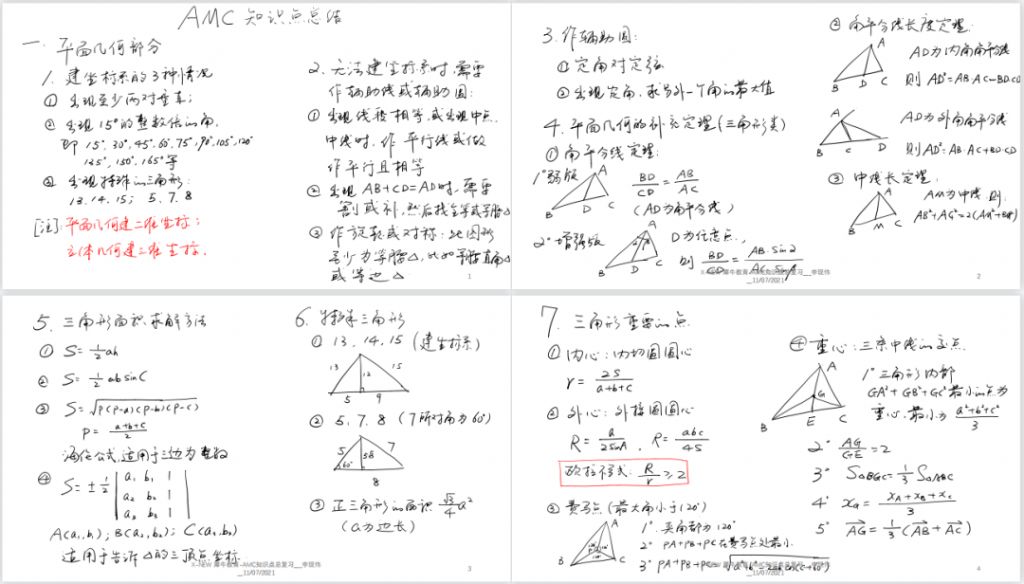 AMC 知识点总结
一. 平面几何部分
1. 建坐标系的3种情况
① 出现至少两对垂直;
② 出现15°的整数倍的角.
即 15°, 30°, 45°, 60°, 75°, 90°, 105°, 120°
135°, 150°, 165°等
③ 出现特殊的三角形:
13. 14. 15; 5. 7. 8
[注]: 平面几何建二维坐标;
立体几何建三维坐标.
2. 无法建坐标系时, 需要
作辅助线或辅助圆:
① 出现线段相等, 或出现中点.
中线时, 作平行线或做
作平行且相等
② 出现 AB+CD=AD时, 需要
割或补, 然后找全等或等腰△
③ 作旋转或对称: 此图形
至少为等腰△, 比如等腰直角△
或等边△
1
3. 作辅助圆:
① 定角对定弦
② 出现定角, 求另外一个角的最大值
4. 平面几何的补充定理(三角形类)
① 角平分线定理:
1° 弱版
A
B
D
C
BD/CD = AB/AC
(AD为角平分线)
2° 增强版
A
B
D
C
D为任意点,
则 BD/CD = AB·sin2/AC·sin1
② 角平分线长度定理.
A
B
D
C
AD为内角角平分线
则 AD²=AB·AC-BD·CD
A
B
C
D
AD为外角角平分线
则AD²=AB·AC+BD·CD
③ 中线长定理.
A
B
M
C
AM为中线 则
AB²+AC²=2(AM²+BM²)
X-NEW 犀牛教育-AMC知识点总复习__李现伟
__11/07/2021
2
5. 三角形面积求解方法
① S=½ah
② S=½absinC
③ S=√p(p-a)(p-b)(p-c)
p = (a+b+c)/2
海伦公式, 适用于三边为整数
④ S=±½ | a₁ b₁ 1 |
| a₂ b₂ 1 |
| a₃ b₃ 1 |
A(a₁,b₁); B(a₂,b₂); C(a₃,b₃)
适用于告诉△的三顶点坐标.
6. 特殊三角形
① 13. 14. 15 (建坐标系)
13
12
15
5
9
② 5. 7. 8 (7所对角为60°)
5
7
60°
8
③ 正三角形的面积 √3/4 a²
(a为边长)
X-NEW 犀牛教育-AMC知识点总复习__李现伟
__11/07/2021
3
7. 三角形重要的点
① 内心: 内切圆圆心
r = 2S/(a+b+c)
② 外心: 外接圆圆心
R = a/2sinA , R = abc/4S
欧拉不等式: R/r ≥ 2
③ 费马点 (最大角小于120°)
A
B
C
1° 夹角都为120°
2° PA+PB+PC在费马点处最小.
3° PA+PB+PC=
④ 重心: 三条中线的交点.
A
G
B
E
C
1° 三角形内部
GA²+GB²+GC²最小的点为
重心. 最小为 (a²+b²+c²)/3
2° AG/GE=2
3° S△BGC=⅓S△ABC
4° x_G = (x_A+x_B+x_C)/3
5° AG=⅓(AB+AC)
X-NEW 犀牛教育-AMC知识点总复习__李现伟
__11/07/2021
4